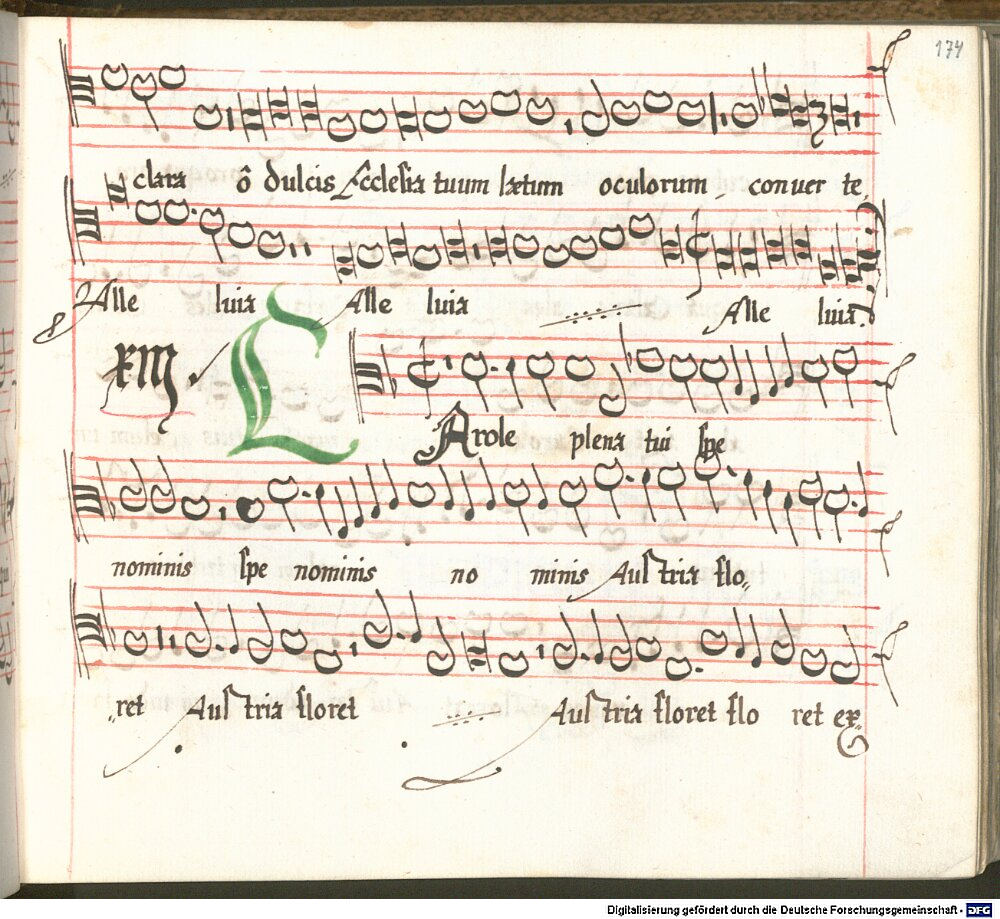 174
clara ô dulcis Ecclesia tuum lætum oculorum conuer te
Alle luia Alle luia Alle luia.
XIII
CArole plena tui spe
nominis spe nominis no minis Austria flo„
„ret Austria floret Austria floret flo ret ex„
Digitalisierung gefördert durch die Deutsche Forschungsgemeinschaft - DFG